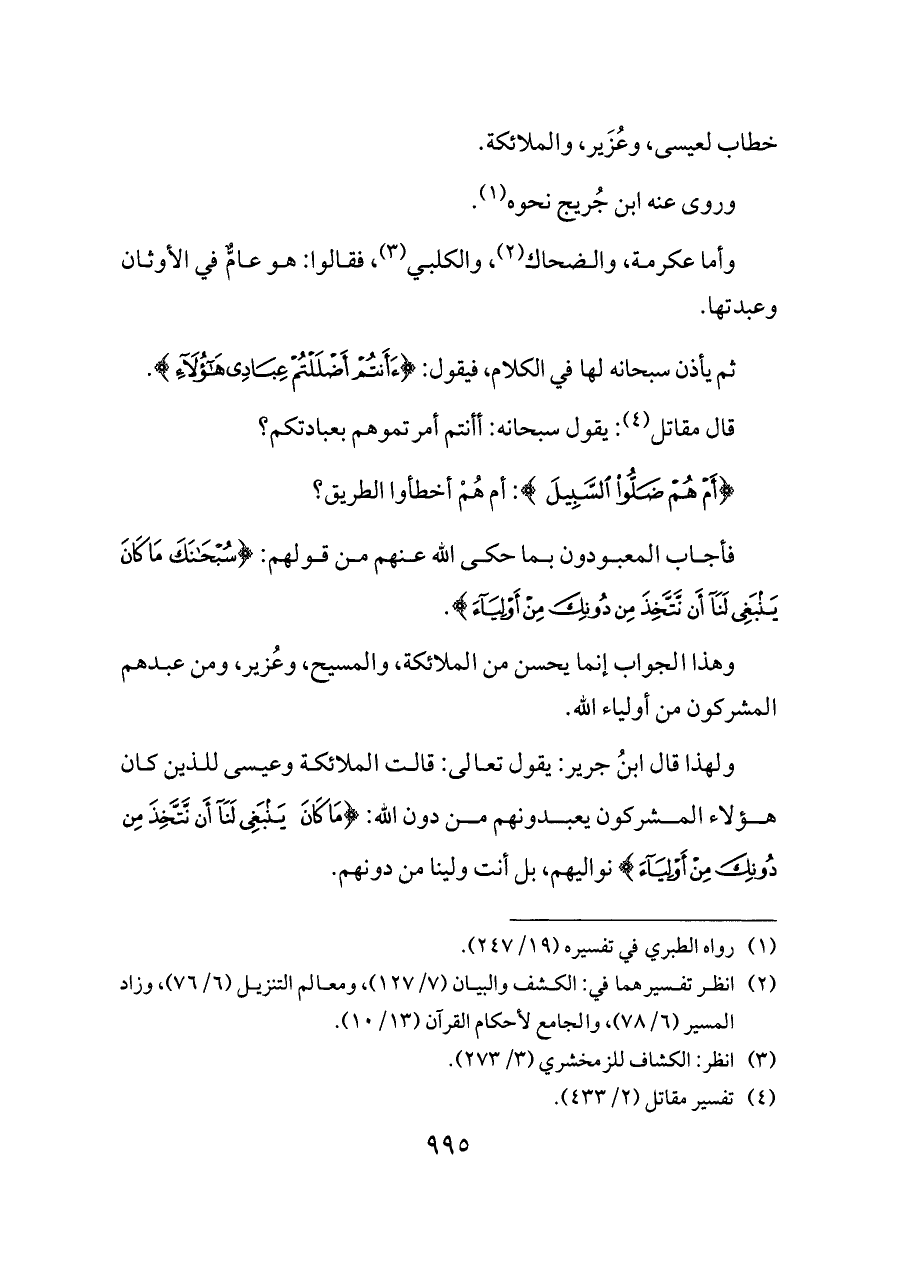 خطاب لعيسى، وعُزَير، والملائكة.
وروى عنه ابن جُريج نحوه(١).
وأما عكرمة، والضحاك(٢)، والكلبي(٣)، فقالوا: هو عامٌّ في الأوثان
وعبدتها.
ثم يأذن سبحانه لها في الكلام، فيقول: ﴿ءَأَنتُمْ أَضْلَلْتُمْ عِبَادِى هَٰٓؤُلَآءِ﴾.
قال مقاتل(٤): يقول سبحانه: أأنتم أمرتموهم بعبادتكم؟
﴿أَمْ هُمْ ضَلُّوا۟ ٱلسَّبِيلَ﴾: أم هُمْ أخطأوا الطريق؟
فأجاب المعبودون بما حكى الله عنهم من قولهم: ﴿سُبْحَٰنَكَ مَا كَانَ
يَنۢبَغِى لَنَآ أَن نَّتَّخِذَ مِن دُونِكَ مِنْ أَوْلِيَآءَ﴾.
وهذا الجواب إنما يحسن من الملائكة، والمسيح، وعُزير، ومن عبدهم
المشركون من أولياء الله.
ولهذا قال ابنُ جرير: يقول تعالى: قالت الملائكة وعيسى للذين كان
هؤلاء المشركون يعبدونهم من دون الله: ﴿مَا كَانَ يَنۢبَغِى لَنَآ أَن نَّتَّخِذَ مِن
دُونِكَ مِنْ أَوْلِيَآءَ﴾ نواليهم، بل أنت ولينا من دونهم.
(١) رواه الطبري في تفسيره (١٩/ ٢٤٧).
(٢) انظر تفسيرهما في: الكشف والبيان (٧/ ١٢٧)، ومعالم التنزيل (٦/ ٧٦)، وزاد
المسير (٦/ ٧٨)، والجامع لأحكام القرآن (١٣/ ١٠).
(٣) انظر: الكشاف للزمخشري (٣/ ٢٧٣).
(٤) تفسير مقاتل (٢/ ٤٣٣).
٩٩٥